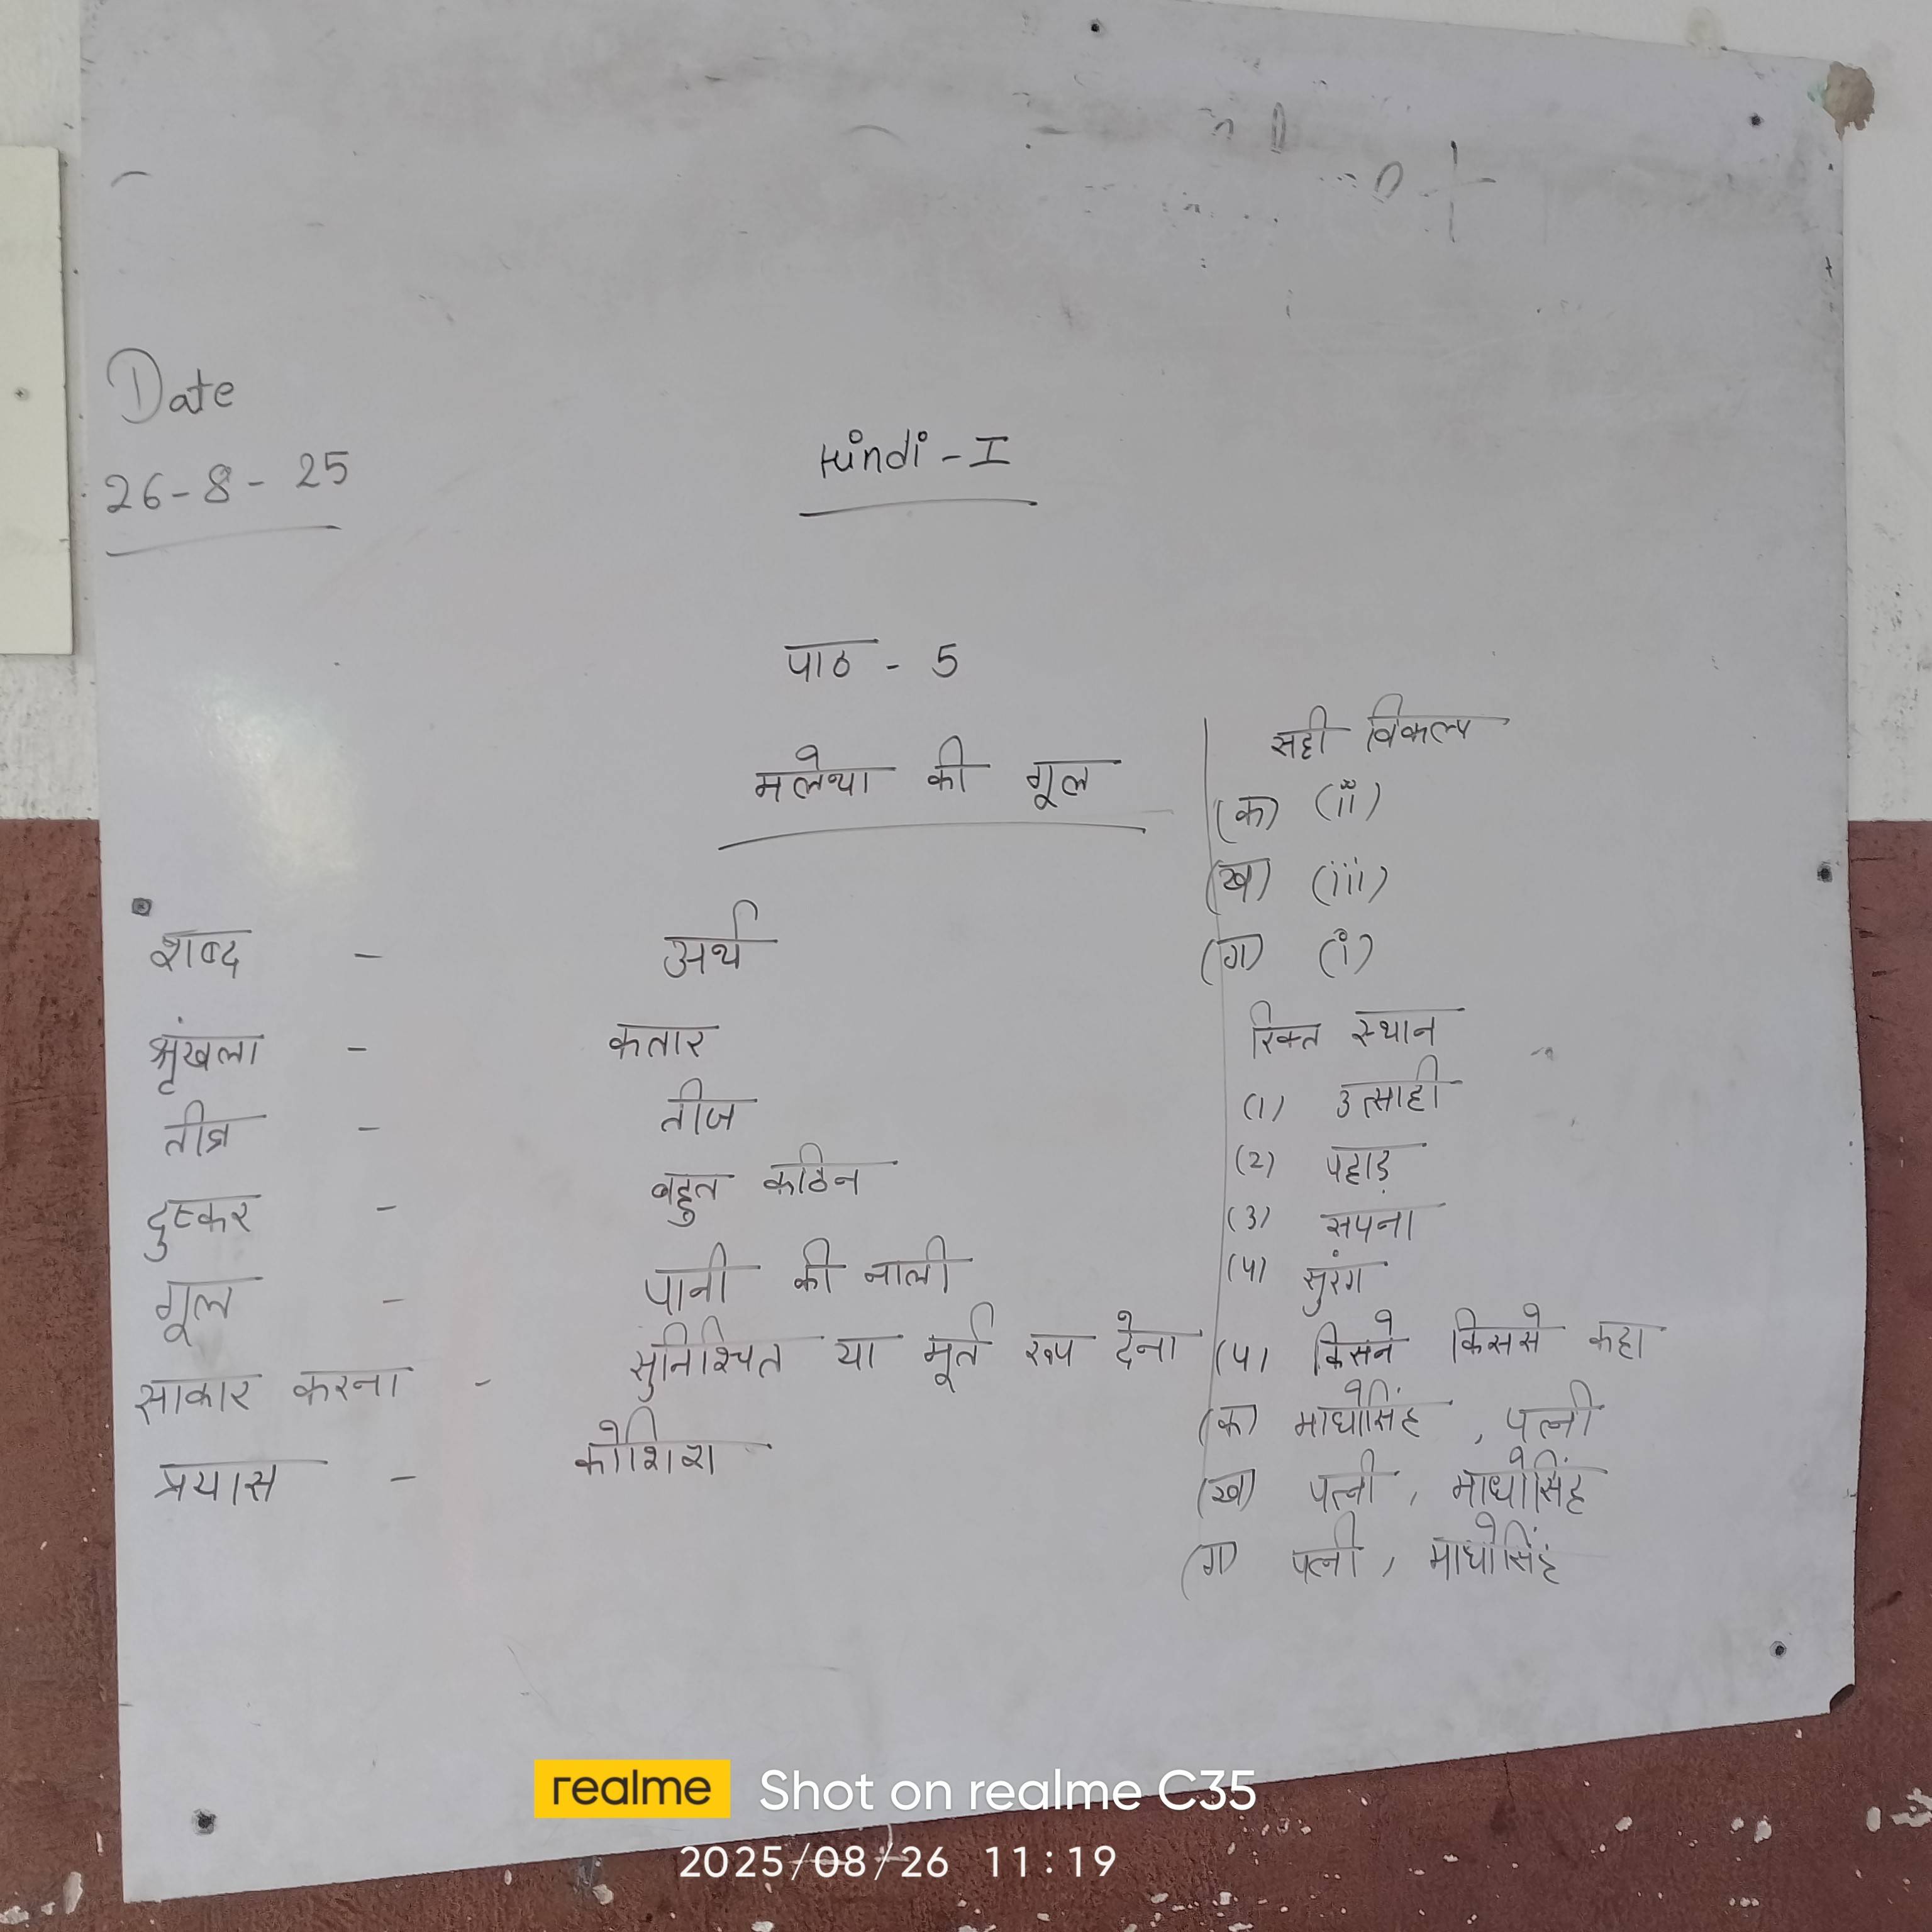 Date
26-8-25
Hindi-I
पाठ - 5
मलेथा की गूल
शब्द - अर्थ
श्रृंखला - कतार
तीव्र - तीज
दुष्कर - बहुत कठिन
गूल - पानी की नाली
साकार करना - सुनिश्चित या मूर्त रूप देना
प्रयास - कोशिश
सही विकल्प
(क) (ii)
(ख) (iii)
(ग) (i)
रिक्त स्थान
(1) उत्साही
(2) पहाड़
(3) सपना
(4) सुरंग
(4) किसने किससे कहा
(क) माधोसिंह, पत्नी
(ख) पत्नी, माधोसिंह
(ग) पत्नी, माधोसिंह
realme Shot on realme C35
2025/08/26 11:19